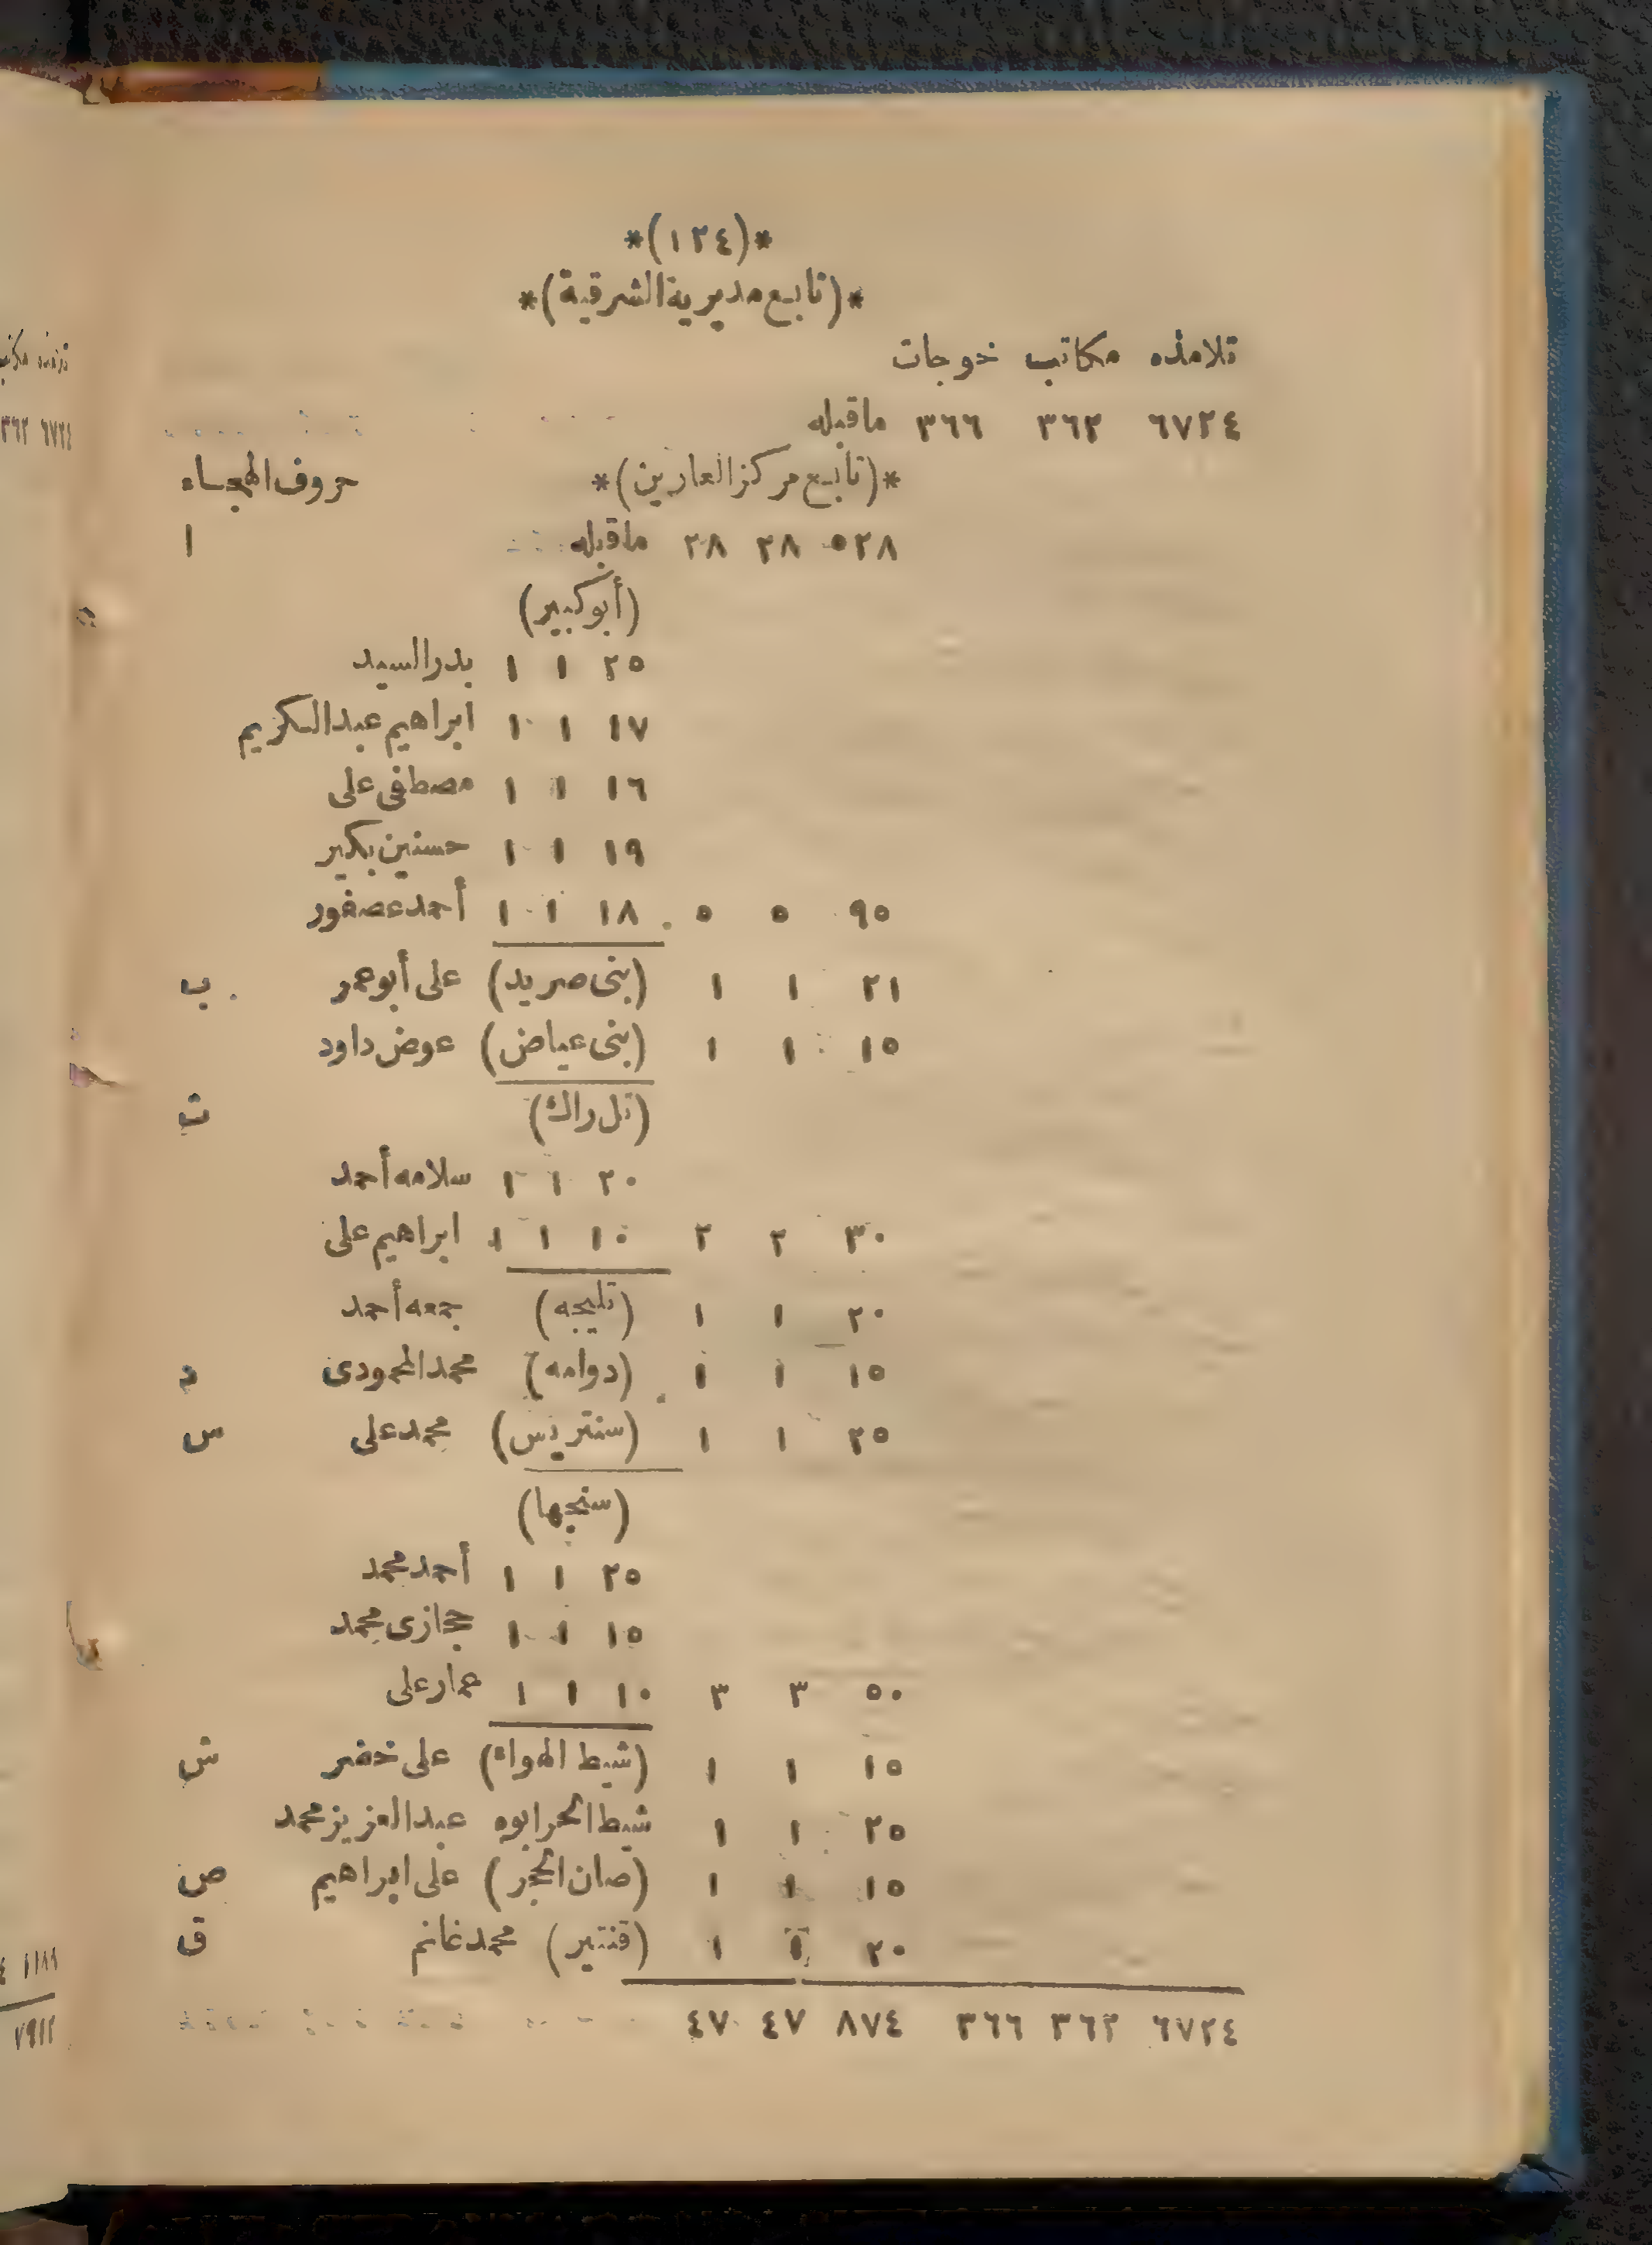 *(١٢٤)*
*(تابع مديرية الشرقية)*
تلامذه مكاتب خوجات
٦٧٢٤ ٣٦٣ ٣٦٦ ماقبله
*(تابع مركز العارين)* حروف الهجاء
٥٢٨ ٢٨ ٢٨ ماقبله ا
(أبوكبير)
٢٥ ١ ١ بدر السيد
١٧ ١ ١ ابراهيم عبد الكريم
١٦ ١ ١ مصطفى على
١٩ ١ ١ حسنين بكير
٩٥ ٥ ٥ ١٨ ١ ١ أحمد عصفور
٢١ ١ ١ (بنى صريد) على أبو عمر ب
١٥ ١ ١ (بنى عياض) عوض داود
(تل راك) ت
٢٠ ١ ١ سلامه أحمد
٣٠ ٢ ٢ ١٠ ١ ١ ابراهيم على
٢٠ ١ ١ (تليجه) جمعه أحمد
١٥ ١ ١ (دوامه) محمد المحمودى د
٢٥ ١ ١ (سنتريس) محمد على س
(سنجها)
٢٥ ١ ١ أحمد محمد
١٥ ١ ١ حجازى محمد
٥٠ ٣ ٣ ١٠ ١ ١ عمار على
١٥ ١ ١ (شيط الهواء) على خضر ش
٢٥ ١ ١ شيط الحرابوه عبد العزيز محمد
١٥ ١ ١ (صان الحجر) على ابراهيم ص
٢٠ ١ ١ (قنتير) محمد غانم ق
٦٧٢٤ ٣٦٣ ٣٦٦ ٨٧٤ ٤٧ ٤٧